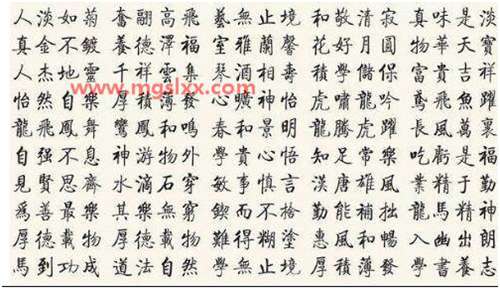 人淡如菊 奮翮高飛 藝無止境 和敬清寂 真味是淡
真金不鍍 養德澤福 室雅蘭馨 花好月圓 物華天寶
人杰地靈 千祥雲集 琴酒相壽 學儲保 富貴吉祥
www.mgslxx.com
怡然自樂 厚積薄發 心曠神怡 虎嘯龍吟 鳶飛魚躍
龍飛鳳舞 鸞鳳和鳴 春和景明 龍騰虎躍 長風萬裏
自强不息 神游物外 學貴心悟 知足常樂 吃虧是福
見賢思齊 水滴石穿 敏事慎言 漢唐雄風 業精于勤
爲善最樂 其樂無窮 鍥而不捨 勤能補拙 龍馬精神
厚德載物 厚德載物 難得糊塗 惠風和暢 入幽出朗
馬到功成 道法自然 學無止境 厚積薄發 學書養志